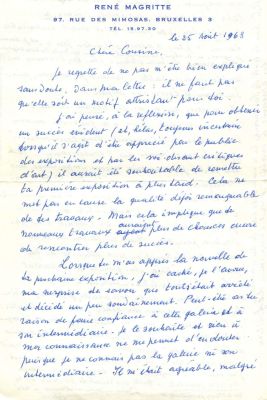 RENÉ MAGRITTE
97, RUE DES MIMOSAS, BRUXELLES 3
TÉL. 15.97.30
le 25 Août 1963
Chère Cousine,
Je regrette de ne pas m'être bien expliqué
sans doute, dans ma lettre : il ne faut pas
qu'elle soit un motif attristant pour toi
J'ai pensé, à la réflexion, que pour obtenir
un succès évident (et, hélas, toujours incertain
lorsqu'il s'agit d'être apprécié par le public
des expositions et par les soi-disant critiques
d'art) il aurait été souhaitable de remettre
ta première exposition à plus tard. Cela ne
met pas en cause la qualité déjà remarquable
de tes travaux. Mais cela implique que de
nouveaux travaux auraient plus de chances encore
de rencontrer plus de succès.
Lorsque tu m'as appris la nouvelle de
ta prochaine exposition, j'ai caché, je l'avoue,
ma surprise de savoir que tout était arrêté
et décidé un peu soudainement. Peut-être as-tu
raison de faire confiance à cette galerie et à
son intermédiaire. Je le souhaite et rien à
ma connaissance ne me permet d'en douter
puisque je ne connais pas la galerie ni son
intermédiaire. Il m'était agréable, malgré